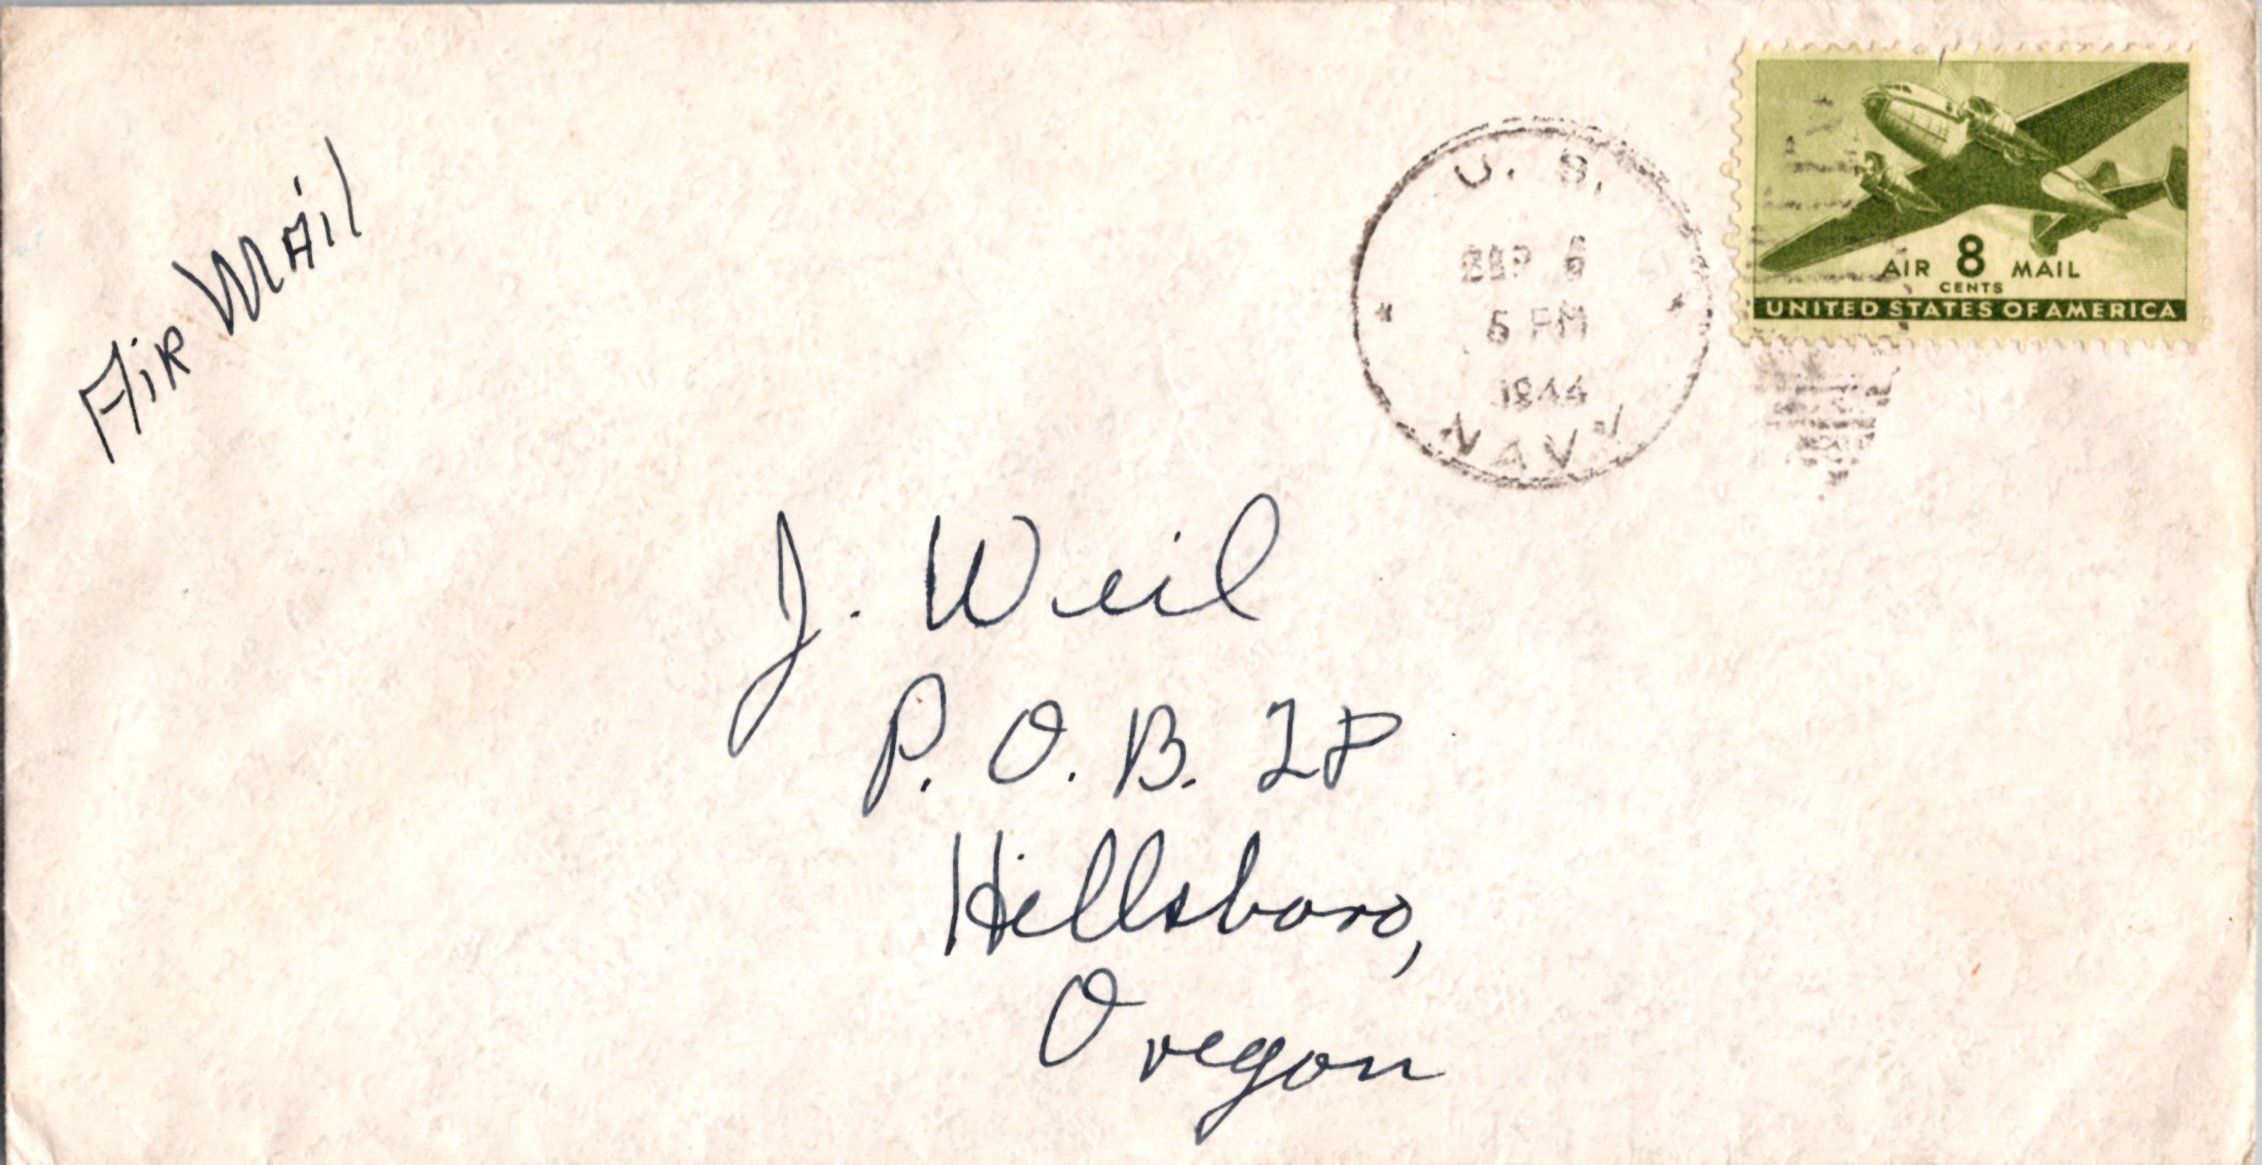 Air Mail
U. S.
SEP 6
5 PM
1944
NAVY
AIR 8 MAIL
CENTS
UNITED STATES OF AMERICA
J. Weil
P. O. B. 28
Hillsboro,
Oregon